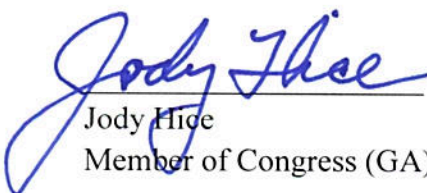 Jody Hice
Jody Hice
Member of Congress (GA)